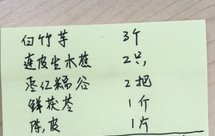 白竹芋 3个
连皮生水蕉 2只
枣仁糯谷 2把
鲜茯苓 1个
陈皮 1片